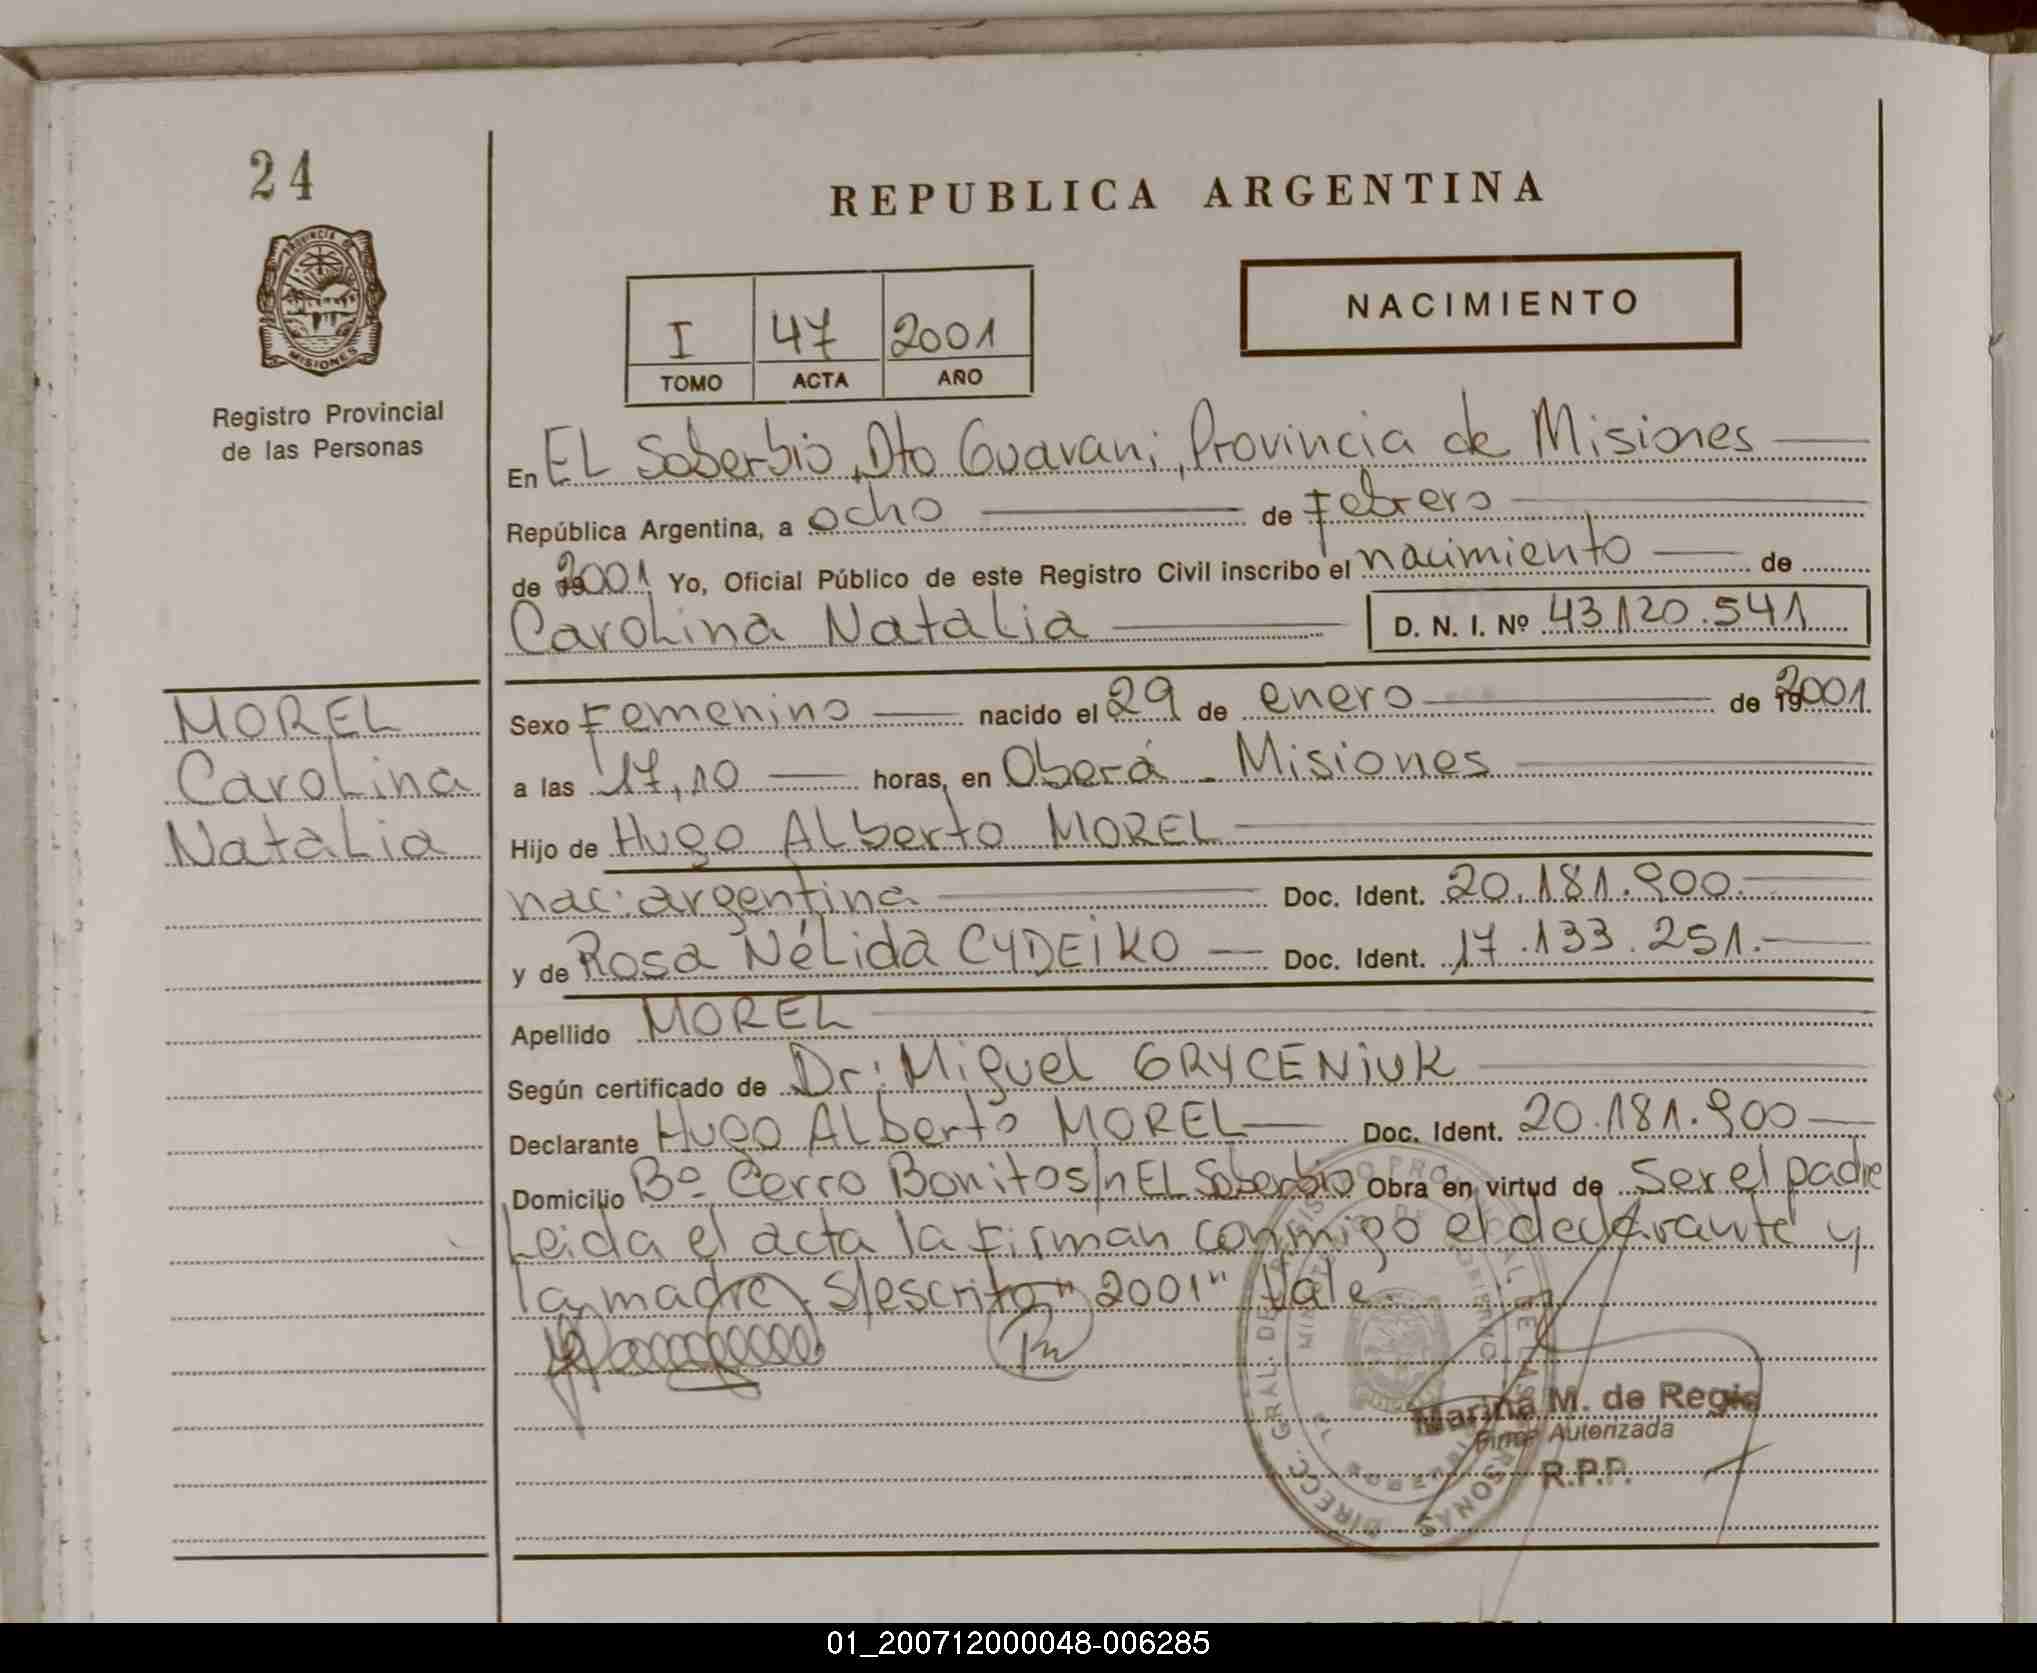 24
REPUBLICA ARGENTINA
PROVINCIA DE
MISIONES
Registro Provincial
de las Personas
I 47 2001
TOMO ACTA AÑO
NACIMIENTO
En EL Soberbio, Dto Guarani, Provincia de Misiones
República Argentina, a ocho de Febrero
de 2001 Yo, Oficial Público de este Registro Civil inscribo el nacimiento de
Carolina Natalia D. N. I. Nº 43.120.541
MOREL
Carolina
Natalia
Sexo Femenino nacido el 29 de enero de 2001.
a las 17,10 horas, en Oberá - Misiones
Hijo de Hugo Alberto MOREL
nac: argentina Doc. Ident. 20.181.900.
y de Rosa Nélida CYDEIKO Doc. Ident. 17.133.251.
Apellido MOREL
Según certificado de Dr: Miguel GRYCENIUK
Declarante Hugo Alberto MOREL Doc. Ident. 20.181.900
Domicilio Bº Cerro Bonito s/n EL Soberbio Obra en virtud de Ser el padre
Leida el acta la firman conmigo el declarante y
la madre. S/escrito "2001" Vale.
Marina M. de Regis
Firma Autorizada
R.P.P.
01_200712000048-006285